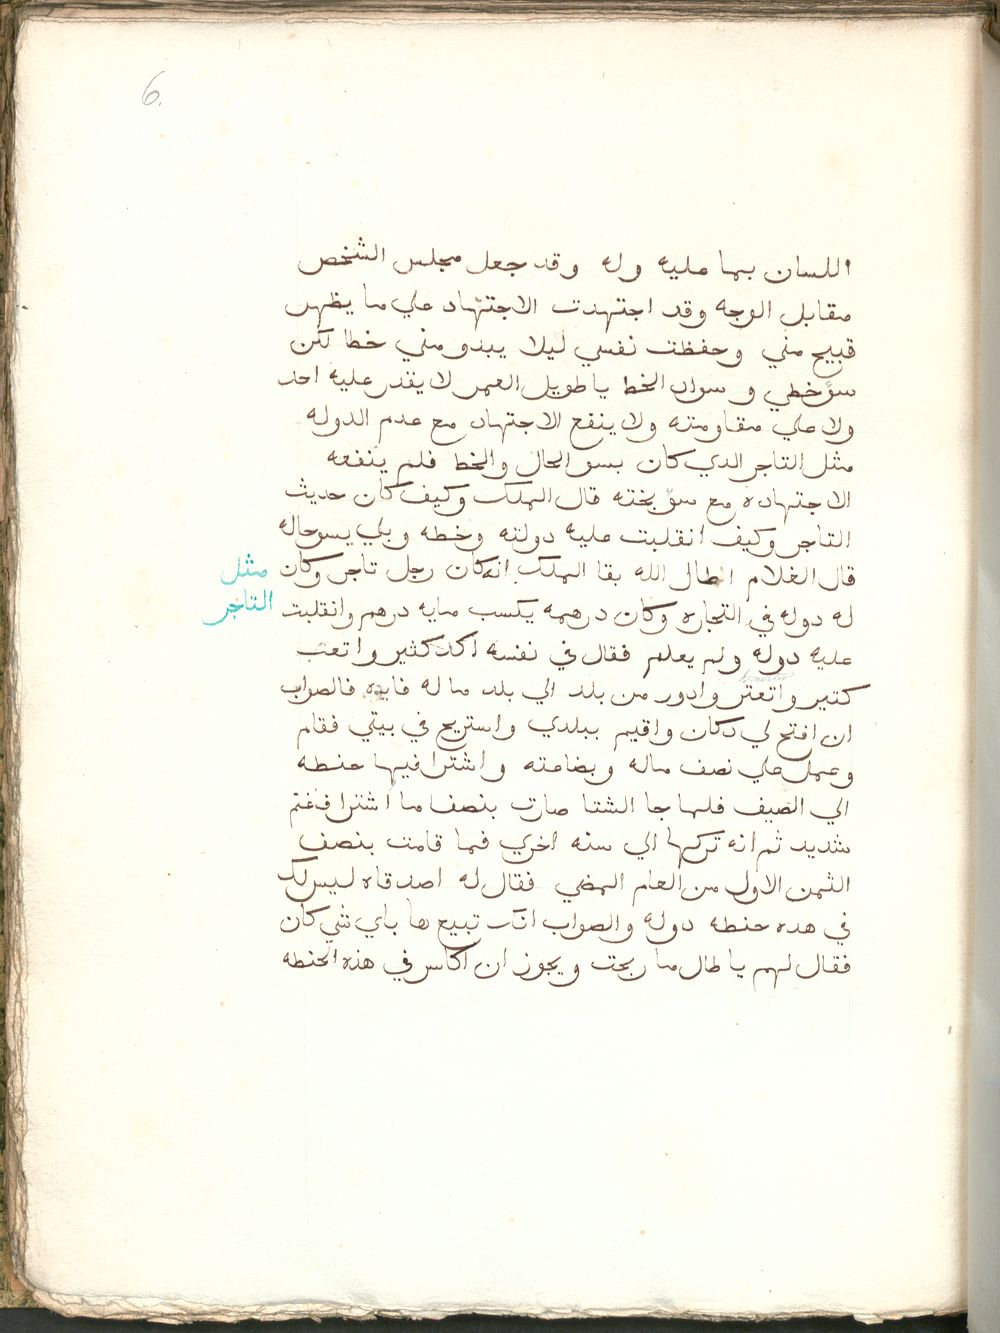 6.
اللسان بها عليه وله وقد جعل مجلس الشخص
مقابل الوجه وقد اجتهدت الاجتهاد علي ما يظهر
قبيح مني وحفظت نفسي ليلا يبدو مني خطا لكن
سؤ خطي و سواد الخط يا طويل العمر لا يقدر عليه احد
ولا علي مقاومته ولا ينفع الاجتهاد مع عدم الدوله
مثل التاجر الدي كان بسو الحال والخط فلم ينفعه
الاجتهاده مع سؤ بخته قال الملك وكيف كان حديث
التاجر وكيف انقلبت عليه دولته وخطه وبلي بسو حاله
قال الغلام اطال الله بقا الملك انه كان رجل تاجر وكان
مثل
التاجر
له دوله في التجاره وكان درهمه يكسب مايه درهم وانقلبت
عليه دوله ولم يعلم فقال في نفسه اكد كثير واتعب
كتير واتعتر وادور من بلد الي بلد ما له فايده فالصواب
ان افتح لي دكان واقيم ببلدي واستريح في بيتي فقام
وعمل علي نصف ماله وبضاعته واشترا فيها حنطه
الي الصيف فلما جا الشتا صارت بنصف ما اشترا فغتم
شديد ثم انه تركها الي سنه اخري فما قامت بنصف
الثمن الاول من العام المضي فقال له اصدقاه ليس لك
في هده حنطه دوله والصواب انك تبيع ها باي شي كان
فقال لهم يا طال ما ربحت ويجوز ان اكاسر في هذه الحنطه